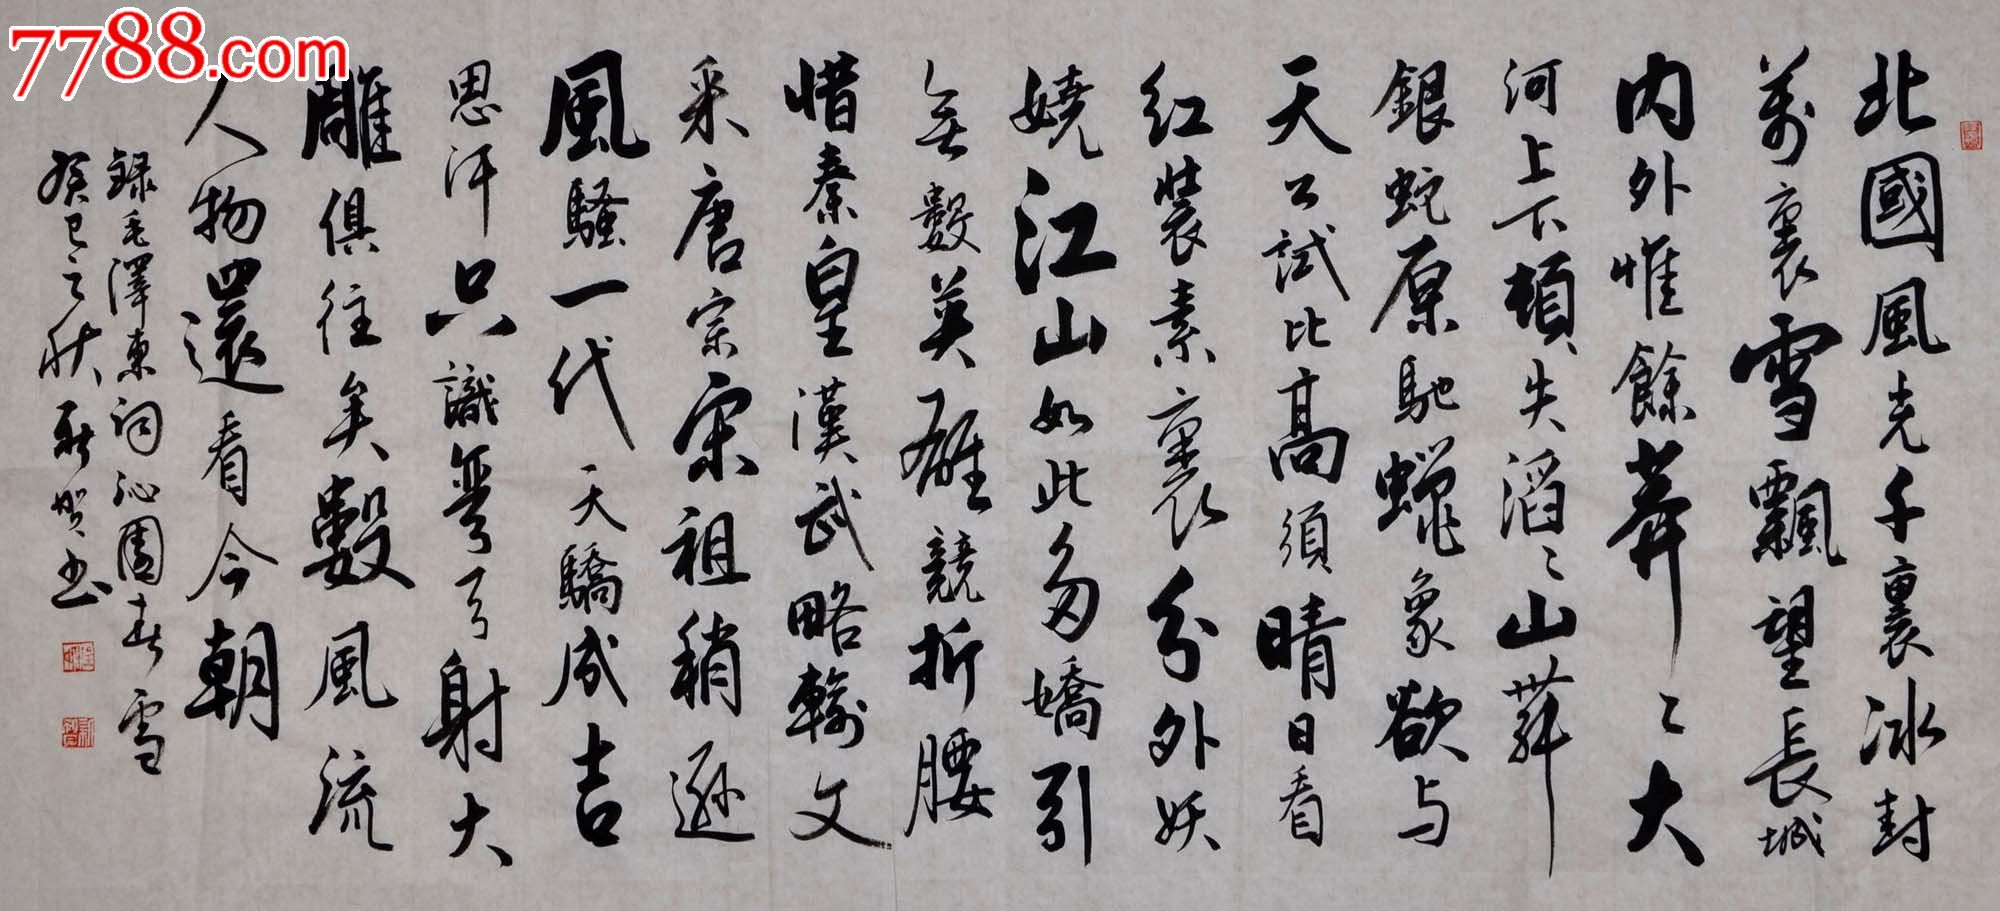 7788.com
北國風光千裏冰封
萬裏雪飄望長城
内外惟餘莽〻大
河上下頓失滔〻山舞
銀蛇原馳蠟象欲与
天公試比高須晴日看
红裝素裹分外妖
嬈江山如此多嬌引
無數英雄競折腰
惜秦皇漢武略輸文
采唐宗宋祖稍遜
風騷一代天驕成吉
思汗只識彎弓射大
雕俱往矣數風流
人物還看今朝
録毛澤東詞沁園春雪
癸巳之秋书